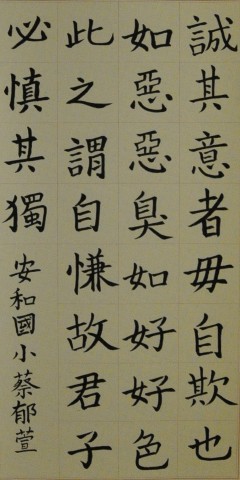 誠其意者毋自欺也
如惡惡臭如好好色
此之謂自慊故君子
必慎其獨
安和國小蔡郁萱